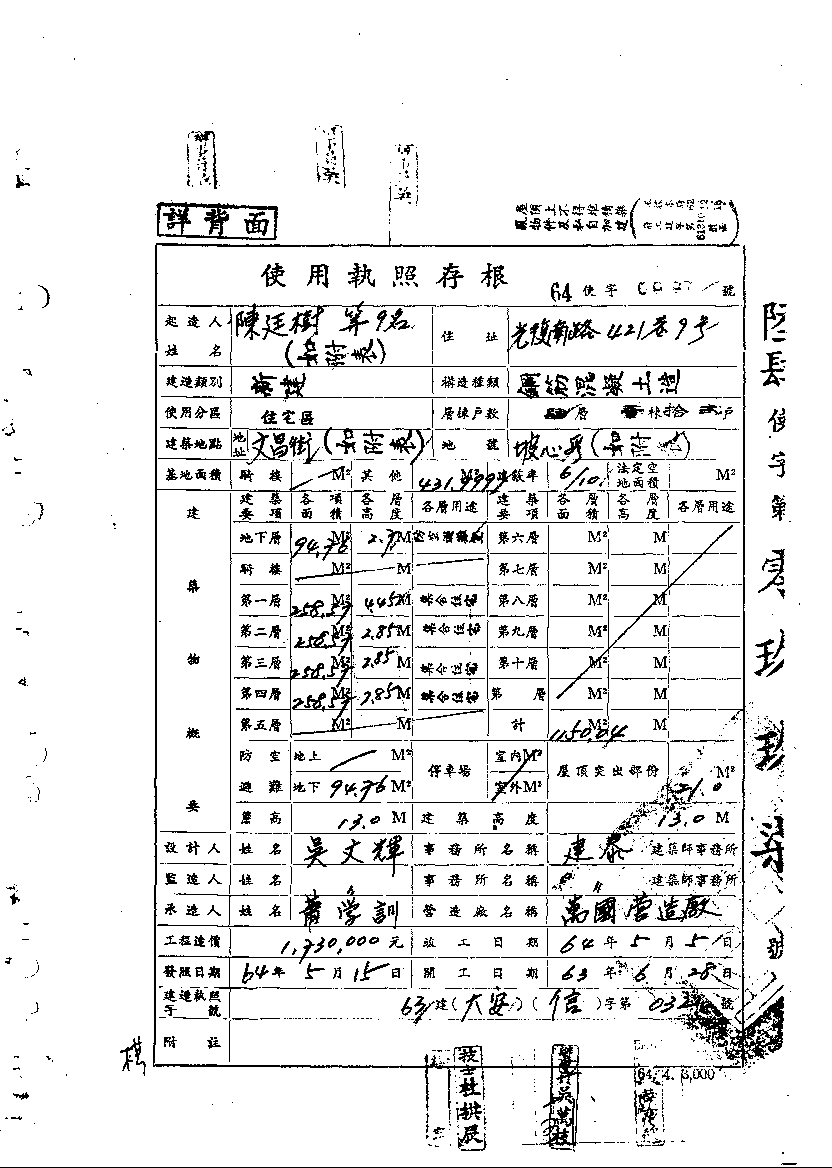 詳背面
屋頂上不得堆積雜
亂物件及私自加建
使用執照存根
64 使字 號
起造人姓名 陳廷樹 等9名 (如附表) 住址 光復南路421巷9号
建造類別 新建 構造種類 鋼筋混凝土造
使用分區 住宅區 層棟戶數 層 棟拾 戶
建築地點 地址 文昌街(如附表) 地號 坡心段(如附表)
基地面積 騎樓 M² 其他 M² 建蔽率 6/10 法定空地面積 M²
建築物概要
建築要項 各項面積 各層高度 各層用途 建築要項 各層面積 各層高度 各層用途
地下層 94.76 M² 2.7 M 第六層 M² M
騎樓 M² M 第七層 M² M
第一層 258.57 M² 4.45 M 集合住宅 第八層 M² M
第二層 258.57 M² 2.85 M 集合住宅 第九層 M² M
第三層 258.57 M² 2.85 集合住宅 第十層 M² M
第四層 258.57 M² 2.85 M 集合住宅 第 層 M² M
第五層 M² M 計 1150.04 M² M
防空避難 地上 M² 停車場 室內 M² 屋頂突出部份 21.0 M²
地下 94.76 M² 室外 M²
簷高 13.0 M 建築高度 13.0 M
設計人 姓名 吳文輝 事務所名稱 建泰 建築師事務所
監造人 姓名 事務所名稱 〃 建築師事務所
承造人 姓名 蕭學訓 營造廠名稱 萬國營造廠
工程造價 1,730,000元 竣工日期 64年5月5日
發照日期 64年5月15日 開工日期 63年6月28日
建造執照字號 63建(大安)(信)字第 號
附註
64.4.3,000
使字第零玖玖柒 號
技士杜拱辰